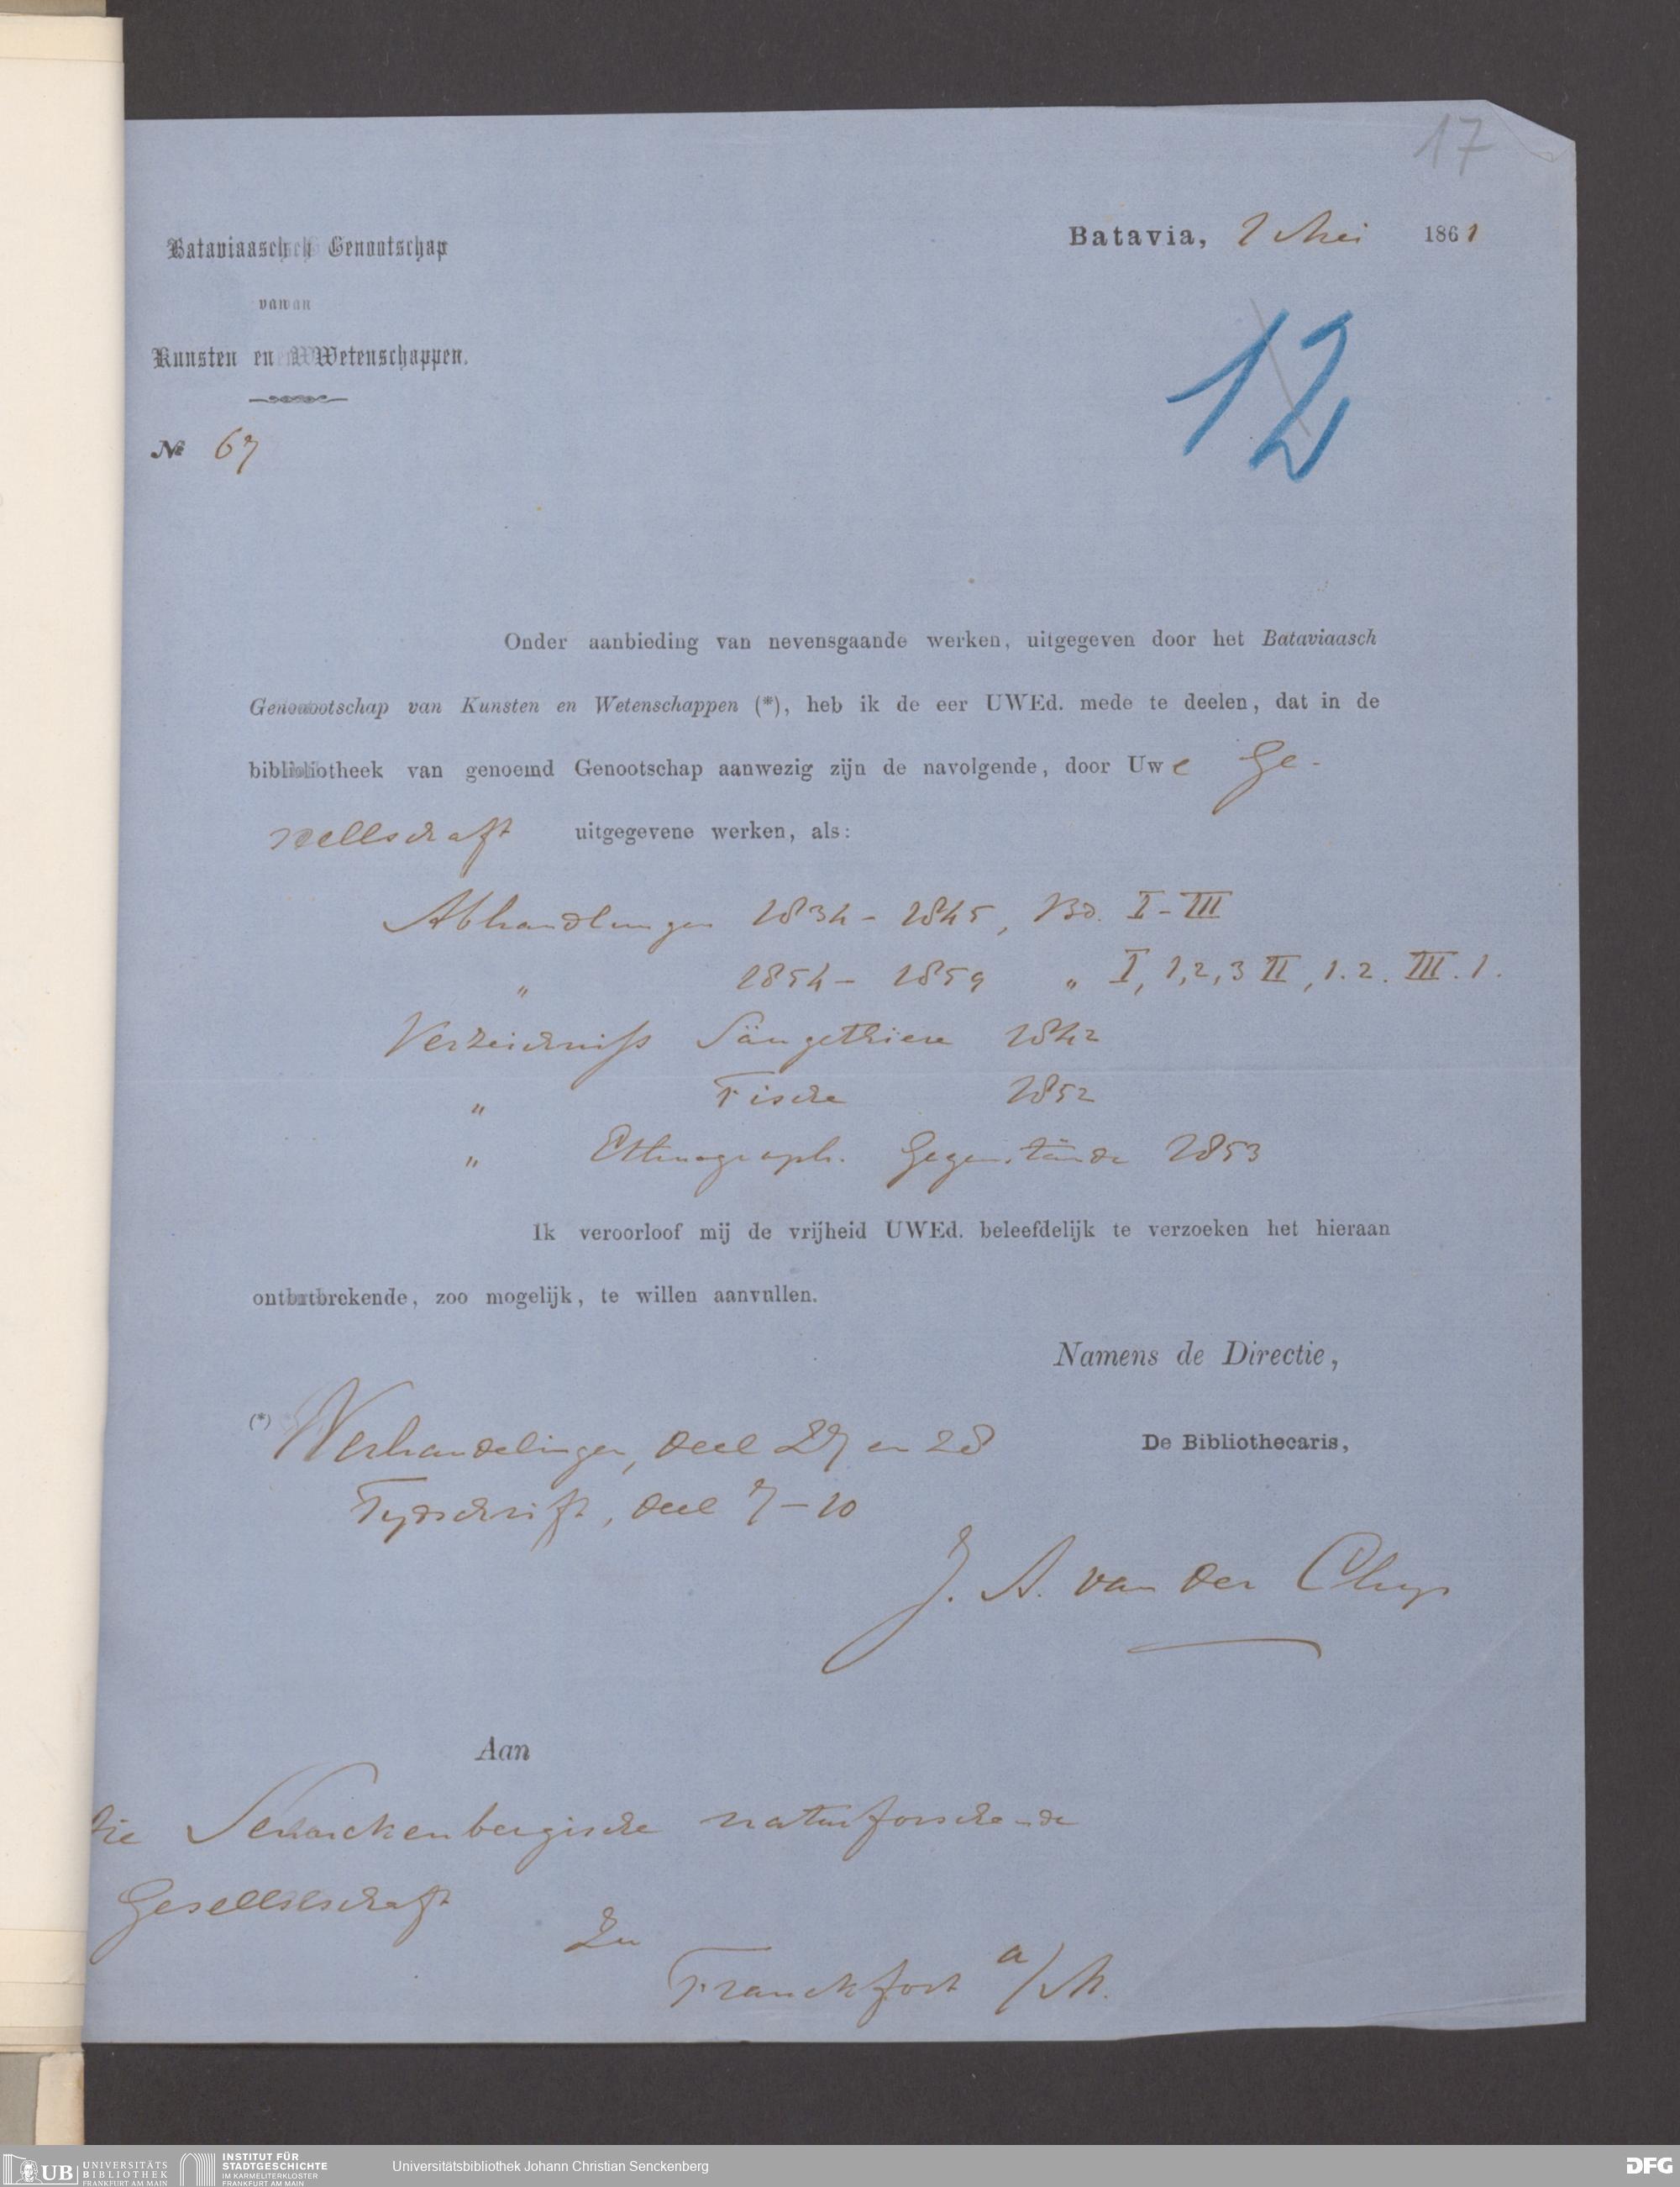 17
Bataviaasch Genootschap
van
Kunsten en Wetenschappen.
№ 67
Batavia, 1 Mei 1861
12
Onder aanbieding van nevensgaande werken, uitgegeven door het Bataviaasch
Genootschap van Kunsten en Wetenschappen (*), heb ik de eer UWEd. mede te deelen, dat in de
bibliotheek van genoemd Genootschap aanwezig zijn de navolgende, door Uwe Ge-
sellschaft uitgegevene werken, als:
Abhandlungen 1834 - 1845, Bd. I - III
" 1854 - 1859 " I, 1, 2, 3 II, 1. 2. III. 1.
Verzeichniss Säugethiere 1842
" Fische 1852
" Ethnograph. Gegenstände 1853
Ik veroorloof mij de vrijheid UWEd. beleefdelijk te verzoeken het hieraan
ontbrekende, zoo mogelijk, te willen aanvullen.
Namens de Directie,
(*) Verhandelingen, deel 27 en 28
De Bibliothecaris,
Tydschrift, deel 7 - 10
J. A. van der Chys
Aan
die Senckenbergische naturforschende
Gesellschaft
zu
Franckfort a/M.
UB UNIVERSITÄTS BIBLIOTHEK FRANKFURT AM MAIN
INSTITUT FÜR STADTGESCHICHTE IM KARMELITERKLOSTER FRANKFURT AM MAIN
Universitätsbibliothek Johann Christian Senckenberg
DFG